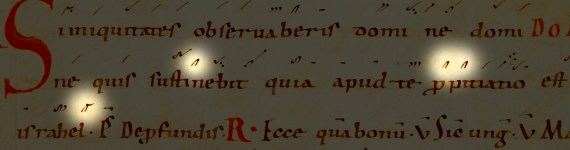 Si iniquitates obseruaberis domi ne domi DO
ne quis sustinebit quia apud te ꝓpitiatio est
israhel · P̃ Depfundis. R · Ecce quā bonū · V Sic ung̃ · V MA